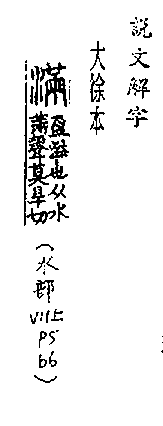 説文解字
大徐本
滿 盈溢也从水
㒼聲莫旱切
(水部 V11上 P5 b6)